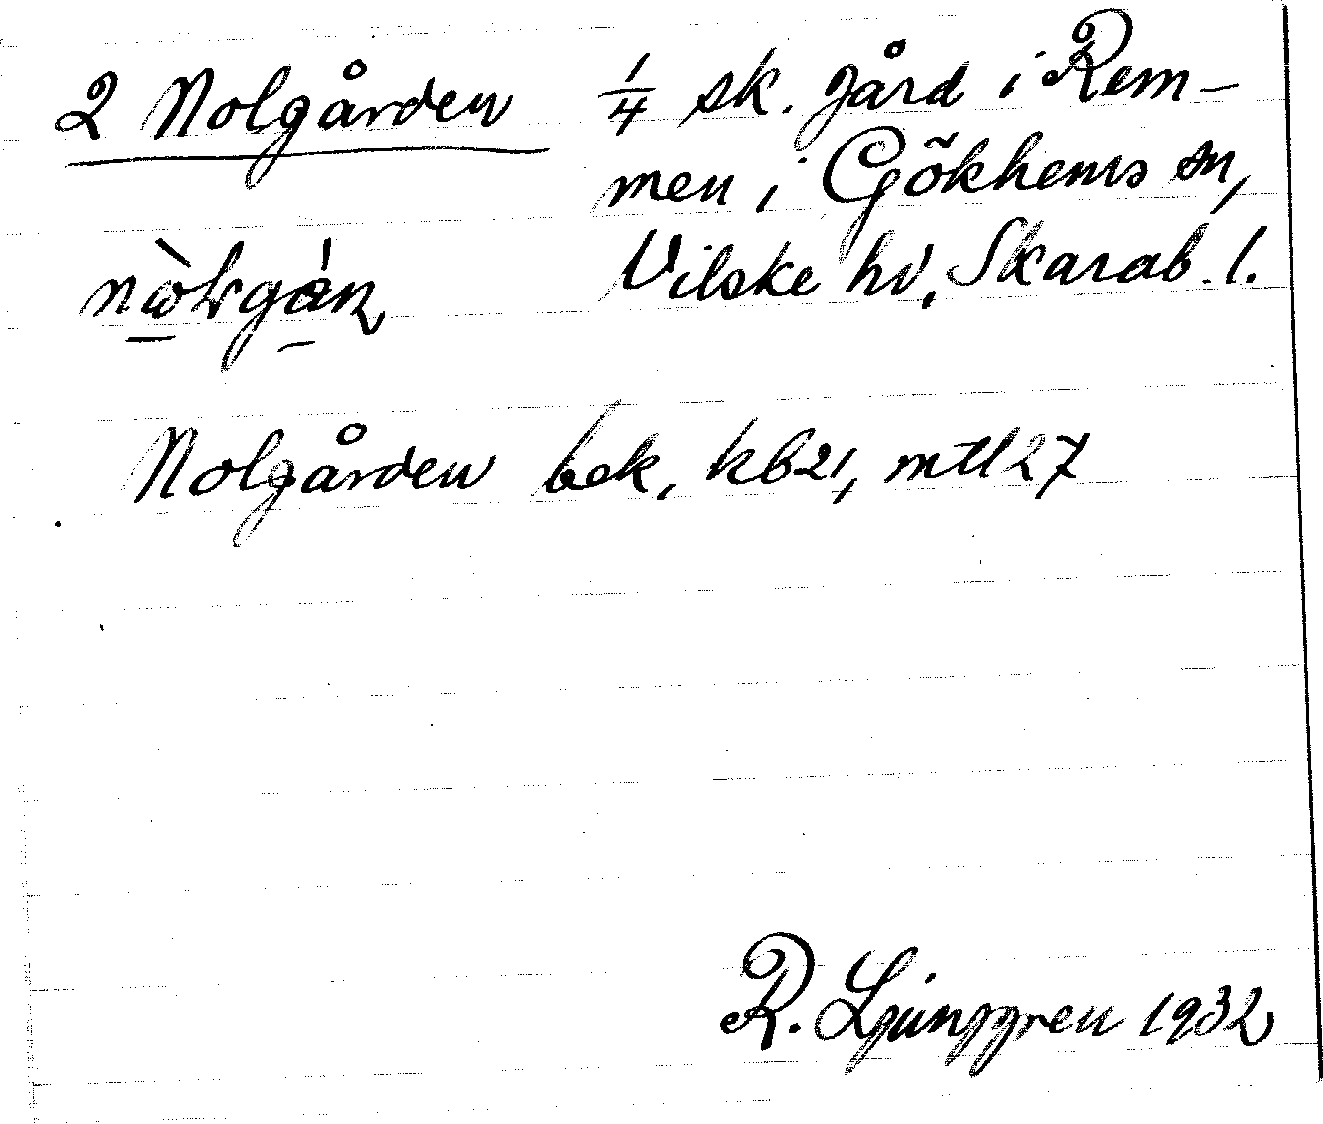 2 Nolgården 1/4 sk. gård i Rem-
men i Gökhems sn,
Vilske hd, Skarab. l.
Nolgården bek, kb21, mtl27
R. Ljunggren 1932